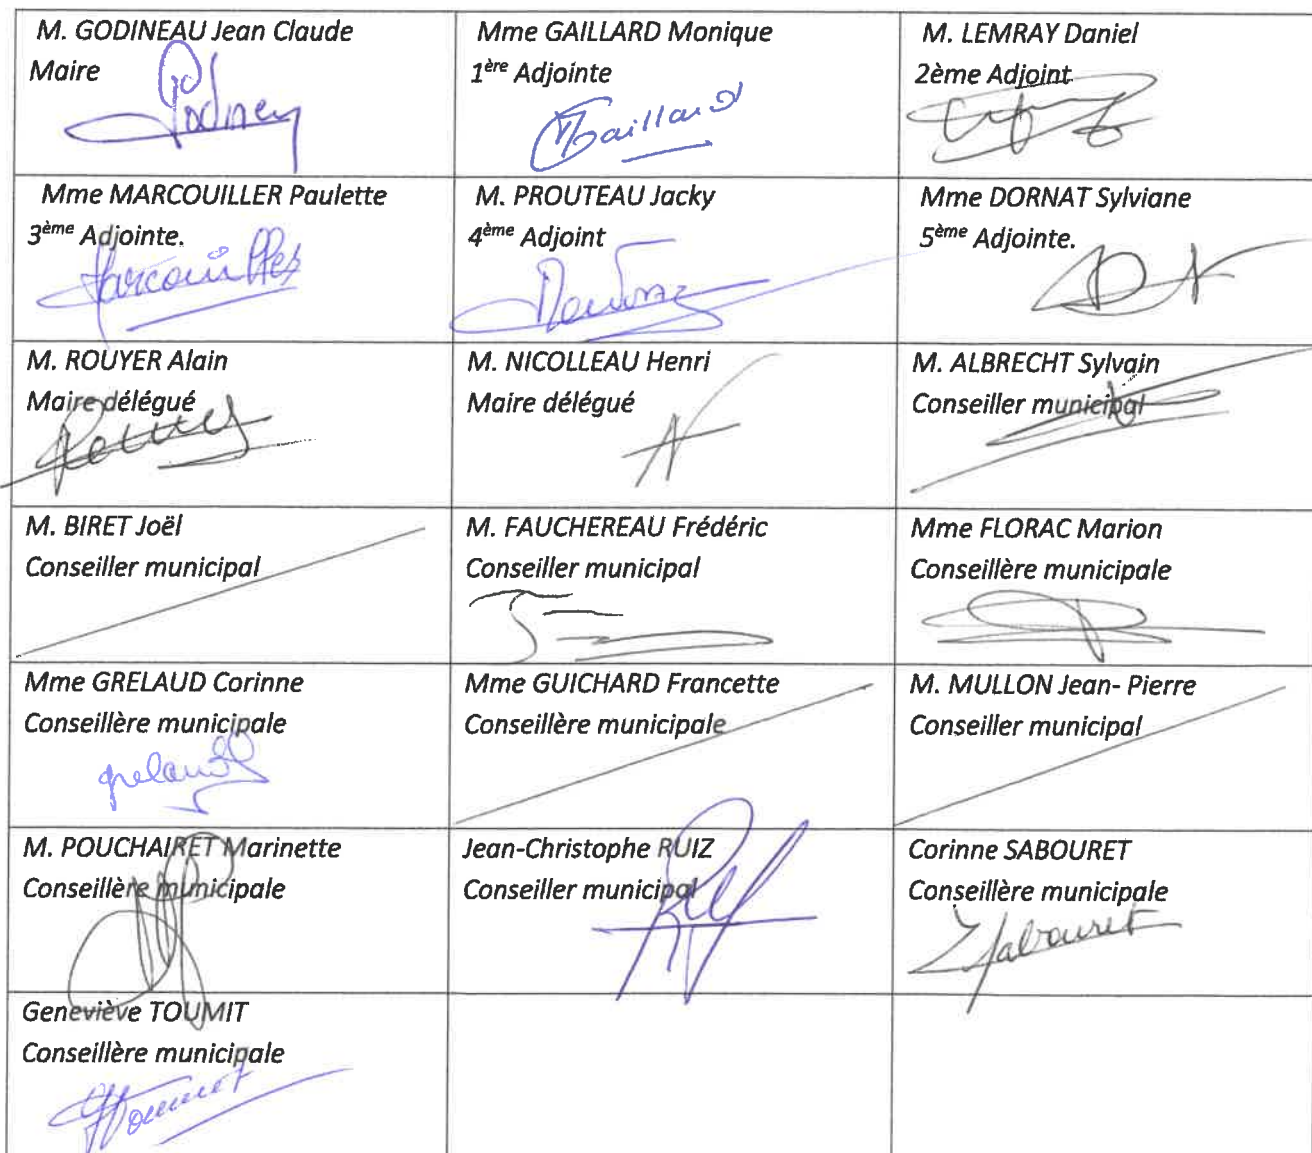 M. GODINEAU Jean Claude
Maire
Godineau
Mme GAILLARD Monique
1ère Adjointe
MGaillard
M. LEMRAY Daniel
2ème Adjoint
Mme MARCOUILLER Paulette
3ème Adjointe.
Marcouiller
M. PROUTEAU Jacky
4ème Adjoint
Mme DORNAT Sylviane
5ème Adjointe.
M. ROUYER Alain
Maire délégué
M. NICOLLEAU Henri
Maire délégué
M. ALBRECHT Sylvain
Conseiller municipal
M. BIRET Joël
Conseiller municipal
M. FAUCHEREAU Frédéric
Conseiller municipal
Mme FLORAC Marion
Conseillère municipale
Mme GRELAUD Corinne
Conseillère municipale
grelaud
Mme GUICHARD Francette
Conseillère municipale
M. MULLON Jean- Pierre
Conseiller municipal
M. POUCHAIRET Marinette
Conseillère municipale
Jean-Christophe RUIZ
Conseiller municipal
Corinne SABOURET
Conseillère municipale
Sabouret
Geneviève TOUMIT
Conseillère municipale